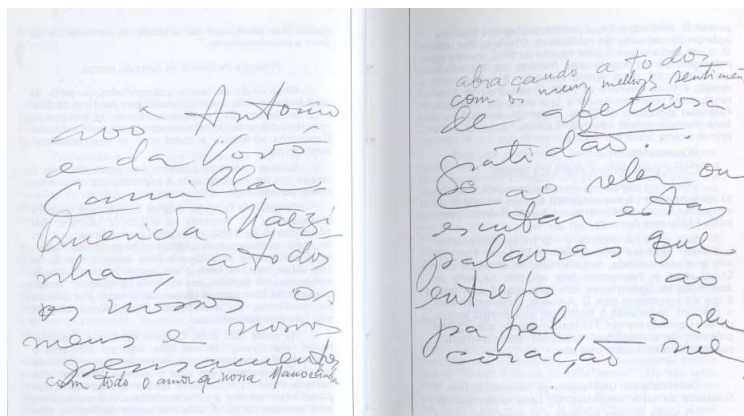 avô Antonio
e da Vovó
Camilla.
Querida Nãezi
nha, a todos
os nossos os
meus e nossos
pensamentos
com todo o amor à nossa Manoelinha
abraçando a todos
com os meus melhores sentimen
de afetuosa
gratidão..
Se ao reler ou
escutar estas
palavras que
entrego ao
papel, o seu
coração me